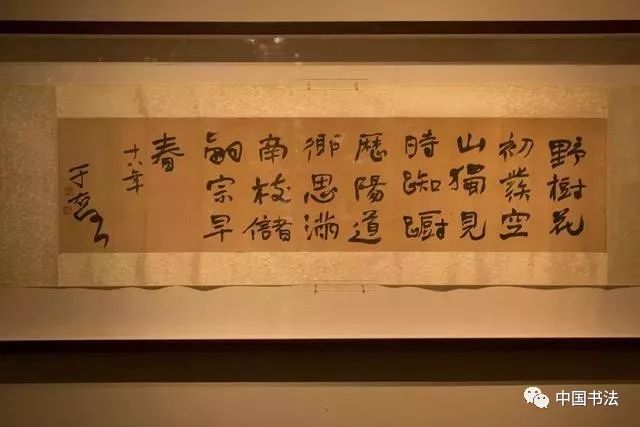 野樹花
初發空
山獨見
時踟躕
歷陽道
鄉思滿
南枝儲
嗣宗早
春
十八年
于右任
中国书法